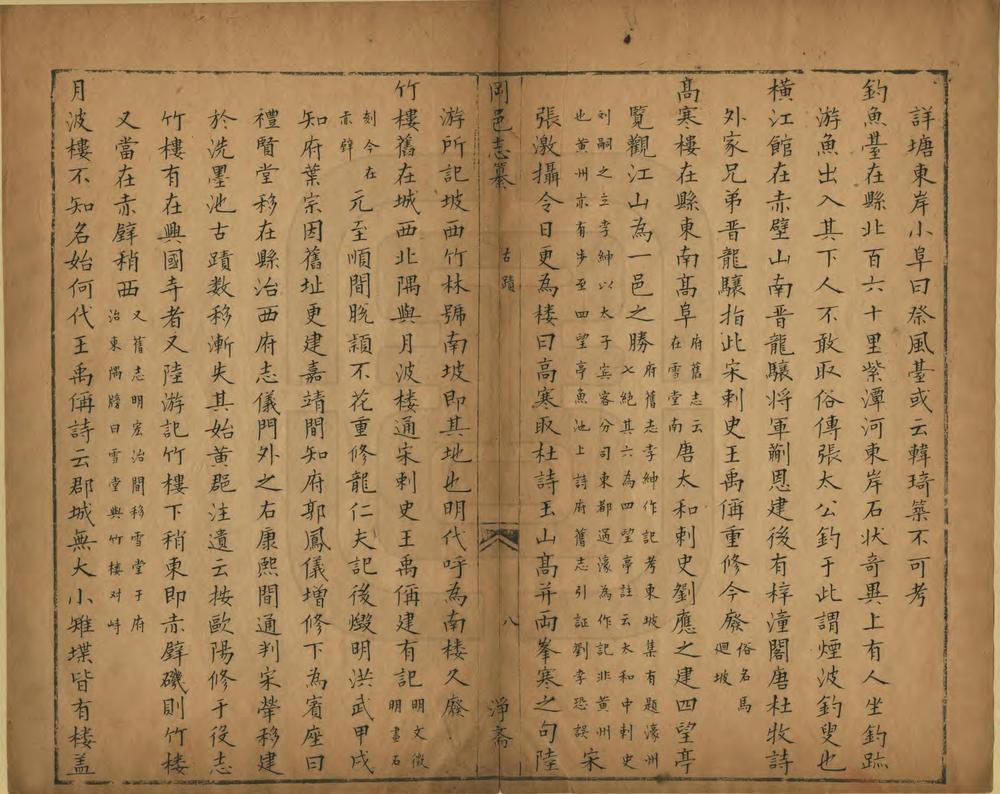 詳塘東岸小阜曰祭風䑓或云韓琦築不可考
釣魚䑓在縣北百六十里紫潭河東岸石狀奇異上有人坐釣跡
游魚出入其下人不敢取俗傳張太公釣于此謂煙波釣叟也
橫江館在赤壁山南晋龍驤将軍蒯恩建後有梓潼閣唐杜牧詩
外家兄弟晋龍驤指此宋刺史王禹偁重修今廢俗名馬廻坡
高寒樓在縣東南高阜府舊志云在雪堂南唐太和刺史劉應之建四望亭
覽觀江山為一邑之勝府舊志李紳作記考東坡集有題濠州七絕其六為四望亭註云太和中刺史
刘嗣之立李紳以太子賓客分司東都過濠為作記非黃州也黃州亦有步至四望亭魚池上詩府舊志引証劉李恐誤宋
張激攝令日更為楼曰高寒取杜詩玉山高并两峯寒之句陸
岡邑志纂
古蹟
八
淨斋
游所記坡西竹林號南坡即其地也明代呼為南楼久廢
竹樓舊在城西北隅與月波楼通宋刺史王禹偁建有記明文徵明書石
刻今在赤壁元至順間脫頴不花重修龍仁夫記後燬明洪武甲戌
知府葉宗因舊址更建嘉靖間知府郭鳳儀增修下為賓座曰
禮賢堂移在縣治西府志儀門外之右康熙間通判宋犖移建
於洗墨池古蹟数移漸失其始黄郡注遺云按歐陽修于役志
竹樓有在興國寺者又陸游記竹樓下稍東即赤壁磯則竹楼
又當在赤壁稍西又舊志明宏治間移雪堂于府治東隅牓曰雪堂與竹楼对峙
月波樓不知名始何代王禹偁詩云郡城無大小雉堞皆有楼盖